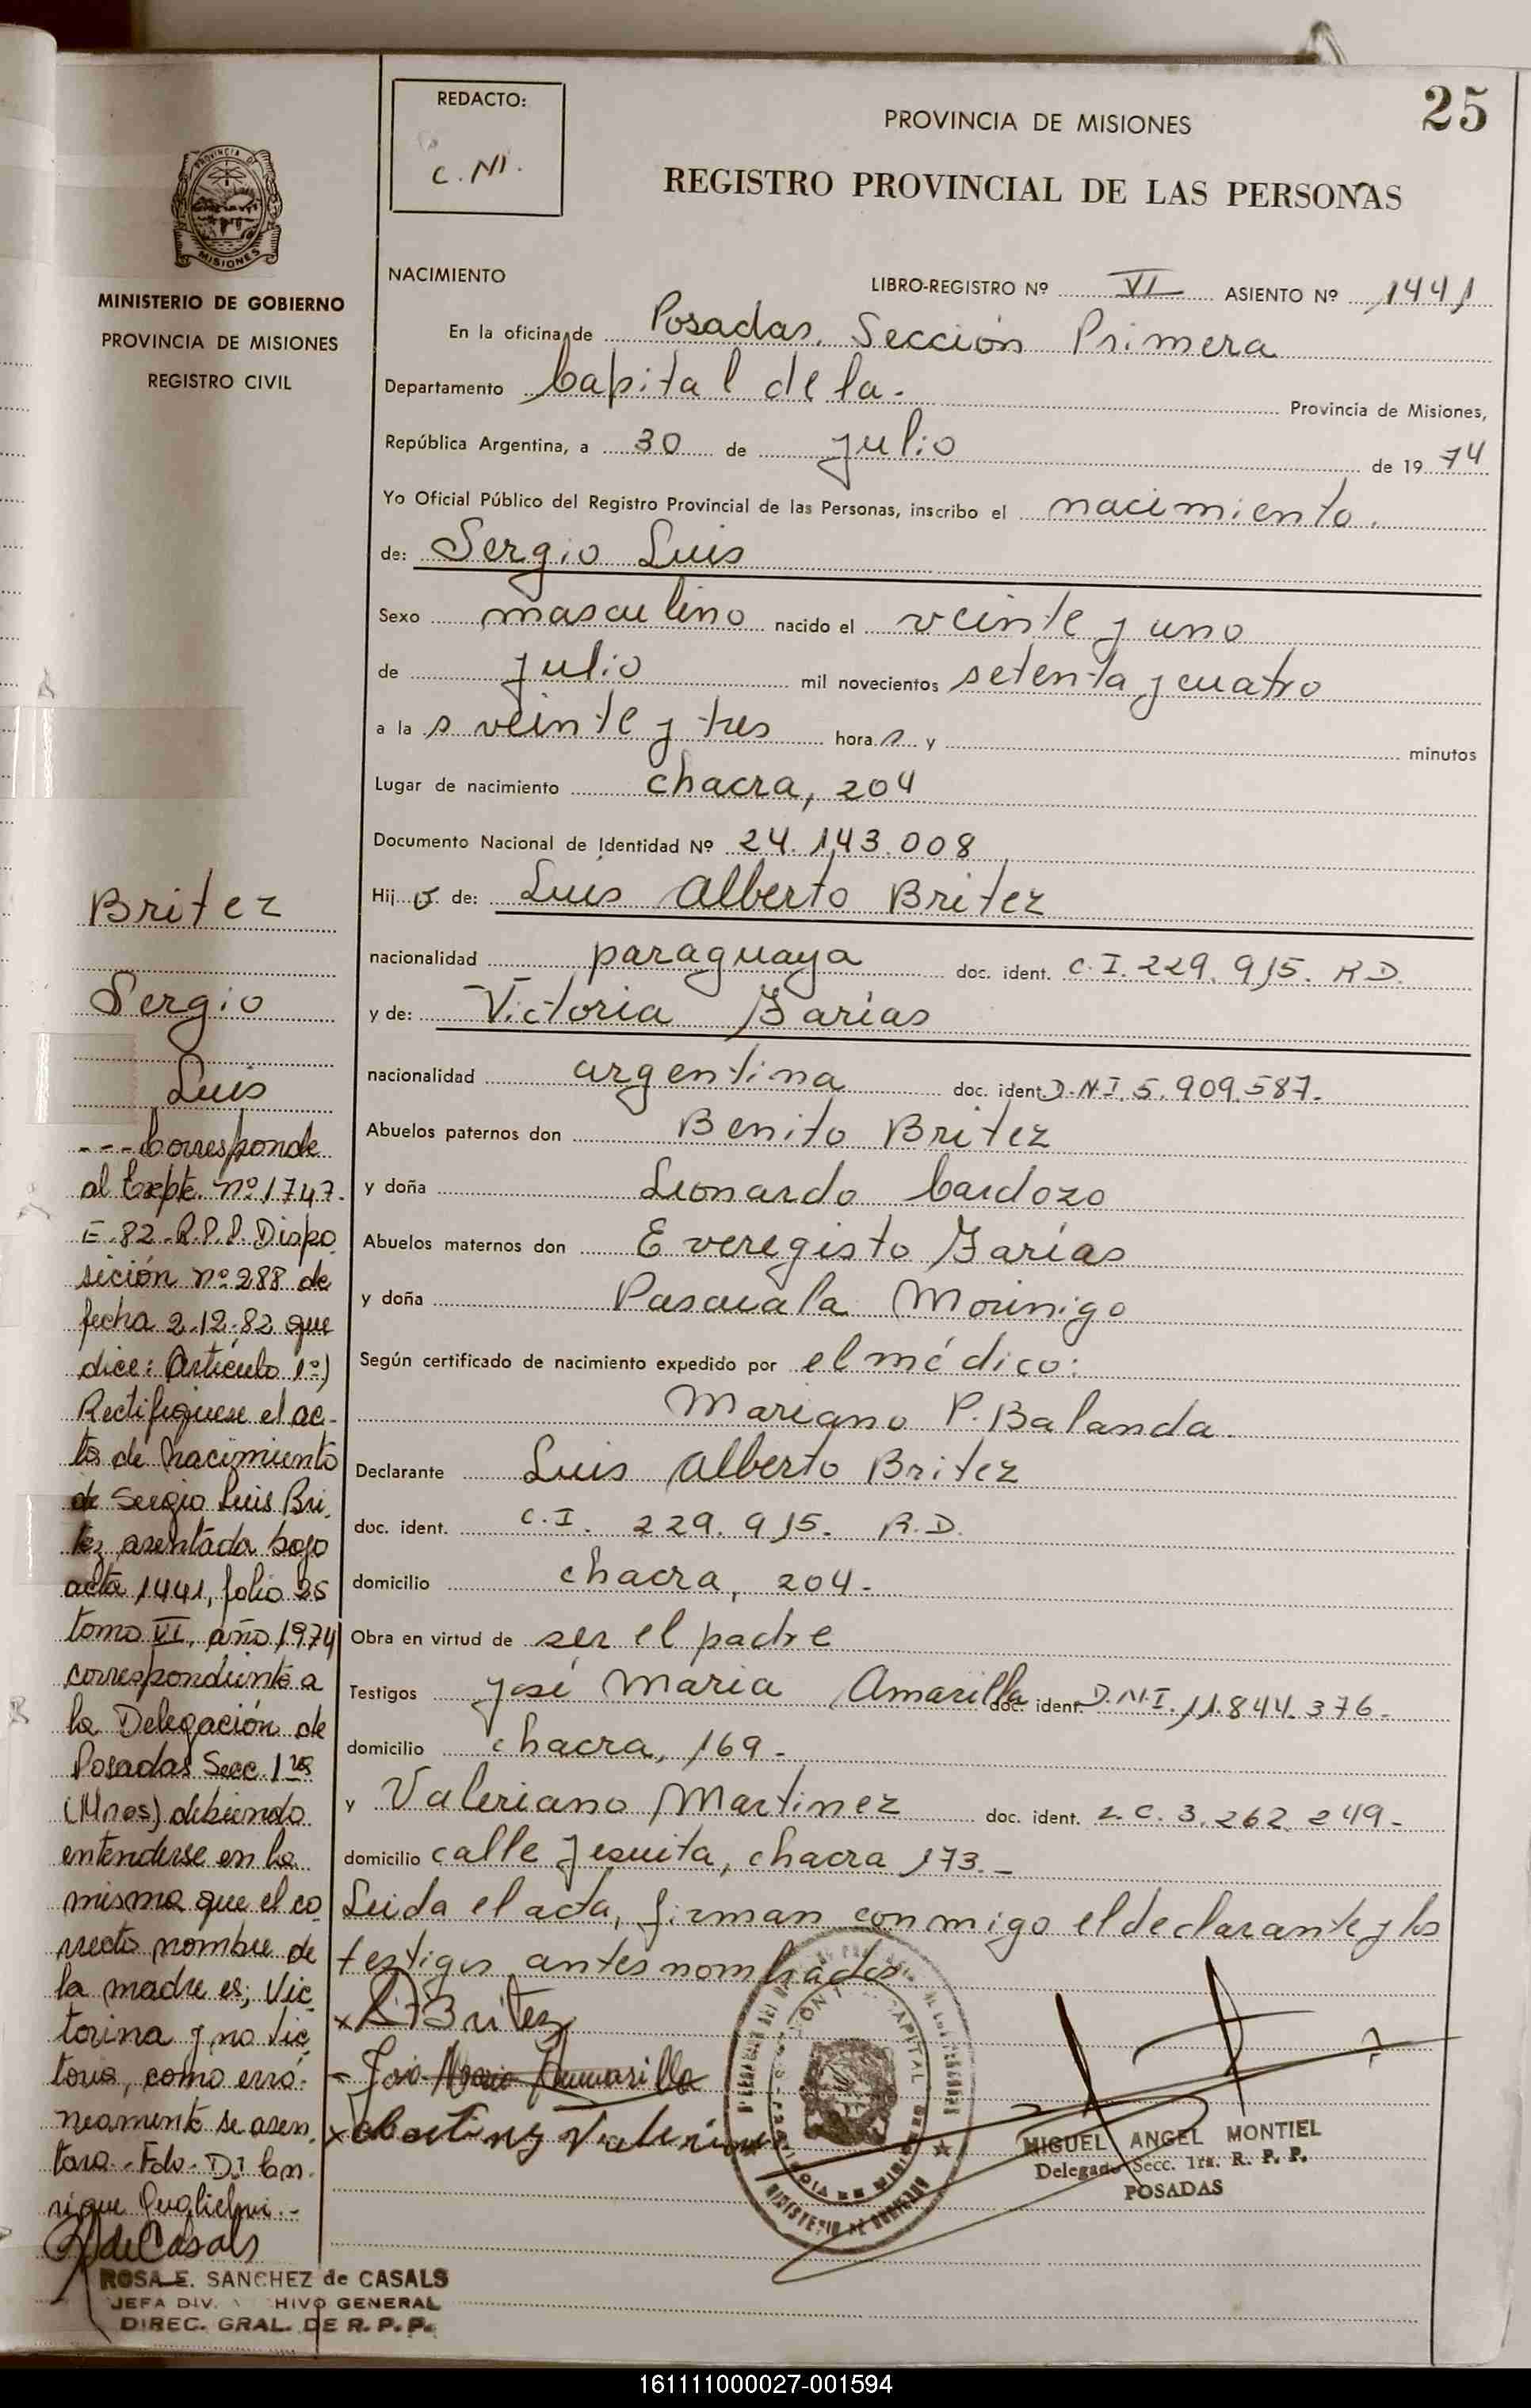 25
REDACTO:
C. M.
PROVINCIA DE MISIONES
REGISTRO PROVINCIAL DE LAS PERSONAS
PROVINCIA DE
MISIONES
MINISTERIO DE GOBIERNO
PROVINCIA DE MISIONES
REGISTRO CIVIL
NACIMIENTO
LIBRO-REGISTRO Nº VI ASIENTO Nº 1441
En la oficina de Posadas. Sección Primera
Departamento Capital de la. Provincia de Misiones,
República Argentina, a 30 de julio de 1974
Yo Oficial Público del Registro Provincial de las Personas, inscribo el nacimiento.
de: Sergio Luis
Sexo masculino nacido el veinte y uno
de julio mil novecientos setenta y cuatro
a la s veinte y tres hora s y minutos
Lugar de nacimiento chacra, 204
Documento Nacional de Identidad Nº 24.143.008
Hij o de: Luis Alberto Britez
nacionalidad paraguaya doc. ident. C.I. 229.915. R.D.
y de: Victoria Farías
nacionalidad argentina doc. ident. D.N.I. 5.909.587.
Abuelos paternos don Benito Britez
y doña Leonarda Cardozo
Abuelos maternos don Everegisto Farías
y doña Pascuala Morinigo
Según certificado de nacimiento expedido por el médico:
Mariano P. Balanda.
Declarante Luis Alberto Britez
doc. ident. C.I. 229.915. R.D.
domicilio chacra, 204.
Obra en virtud de ser el padre
Testigos José María Amarilla doc. ident. D.N.I. 11.844.376.
domicilio chacra, 169.
y Valeriano Martinez doc. ident. L.C. 3.262.249.
domicilio calle Jesuita, chacra 173.
Leida el acta, firman conmigo el declarante y los
testigos antes nombrados
x L A Britez
José Maria Amarilla
x Martinez Valeriano
MIGUEL ANGEL MONTIEL
Delegado Secc. 1ra. R. P. P.
POSADAS
Britez
Sergio
Luis
---Corresponde
al Expte. nº 1747.
E-82-R.P.P. Dispo
sición nº 288 de
fecha 2.12.82 que
dice: Artículo 1º)
Rectifíquese el ac-
ta de nacimiento
de Sergio Luis Bri
tez asentada bajo
acta 1441, folio 25
tomo VI, año 1974
correspondiente a
la Delegación de
Posadas Secc. 1ra
(Mnes) debiendo
entenderse en la
misma que el co
rrecto nombre de
la madre es; Vic
torina y no Vic
toria, como erró-
neamente se asen
tara. Fdo. Dr. En
rique Puglielmi.-
R de Casals
ROSA E. SANCHEZ de CASALS
JEFA DIV. HIVO GENERAL
DIREC. GRAL. DE R. P. P.
161111000027-001594